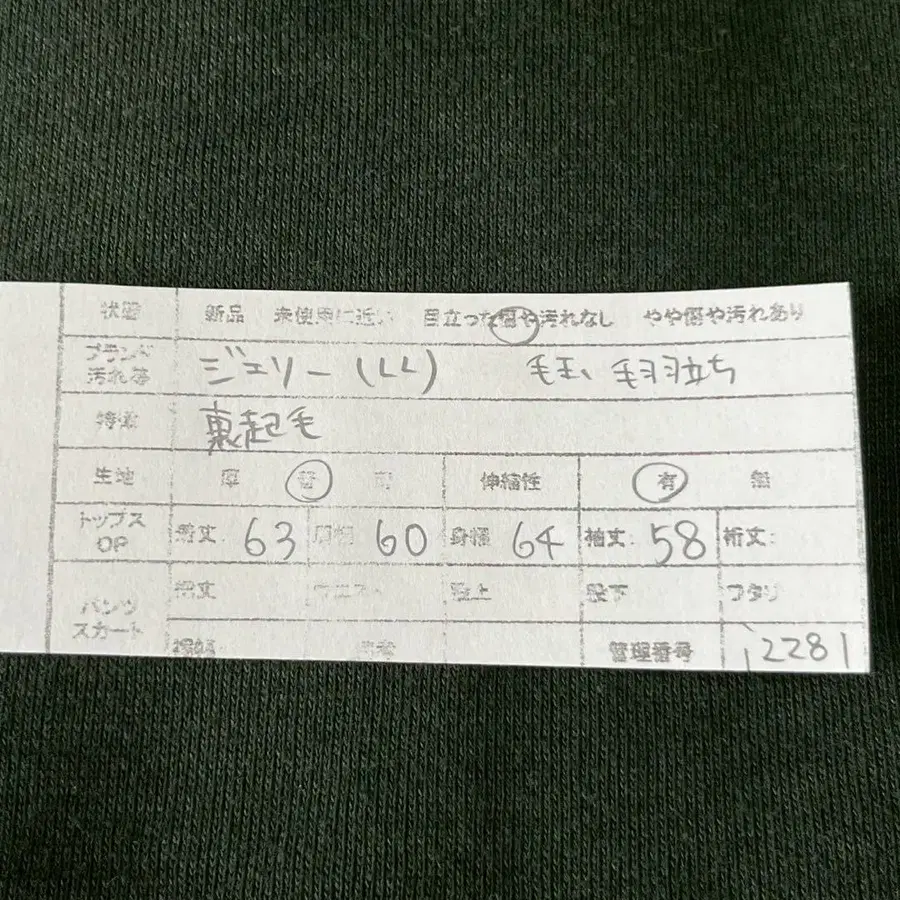 状態 新品 未使用に近い 目立った傷や汚れなし やや傷や汚れあり
ブランド
汚れ等 ジェリー(LL) 毛玉、毛羽立ち
特徴 裏起毛
生地 厚 普 伸縮性 有 無
トップス
OP 着丈: 63 肩幅 60 身幅 64 袖丈: 58 裄丈:
パンツ
スカート 総丈 ウエスト 股上 股下 ワタリ
裾幅 備考 管理番号 12281